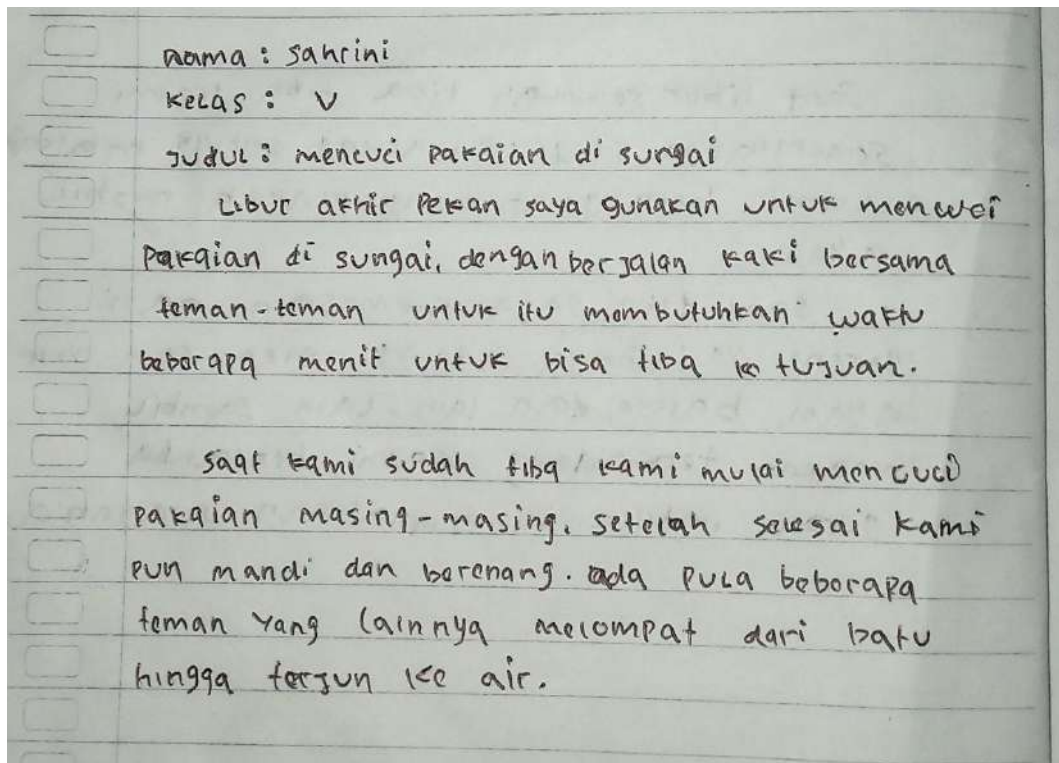 nama : sahrini
Kelas : V
Judul : mencuci pakaian di sungai
Libur akhir Pekan saya gunakan untuk mencuci
pakaian di sungai, dengan berjalan kaki bersama
teman-teman untuk itu membutuhkan waktu
beberapa menit untuk bisa tiba ke tujuan.
Saat kami sudah tiba, kami mulai mencuci
pakaian masing-masing. setelah selesai kami
pun mandi dan berenang. ada pula beberapa
teman yang lainnya melompat dari batu
hingga terjun ke air.